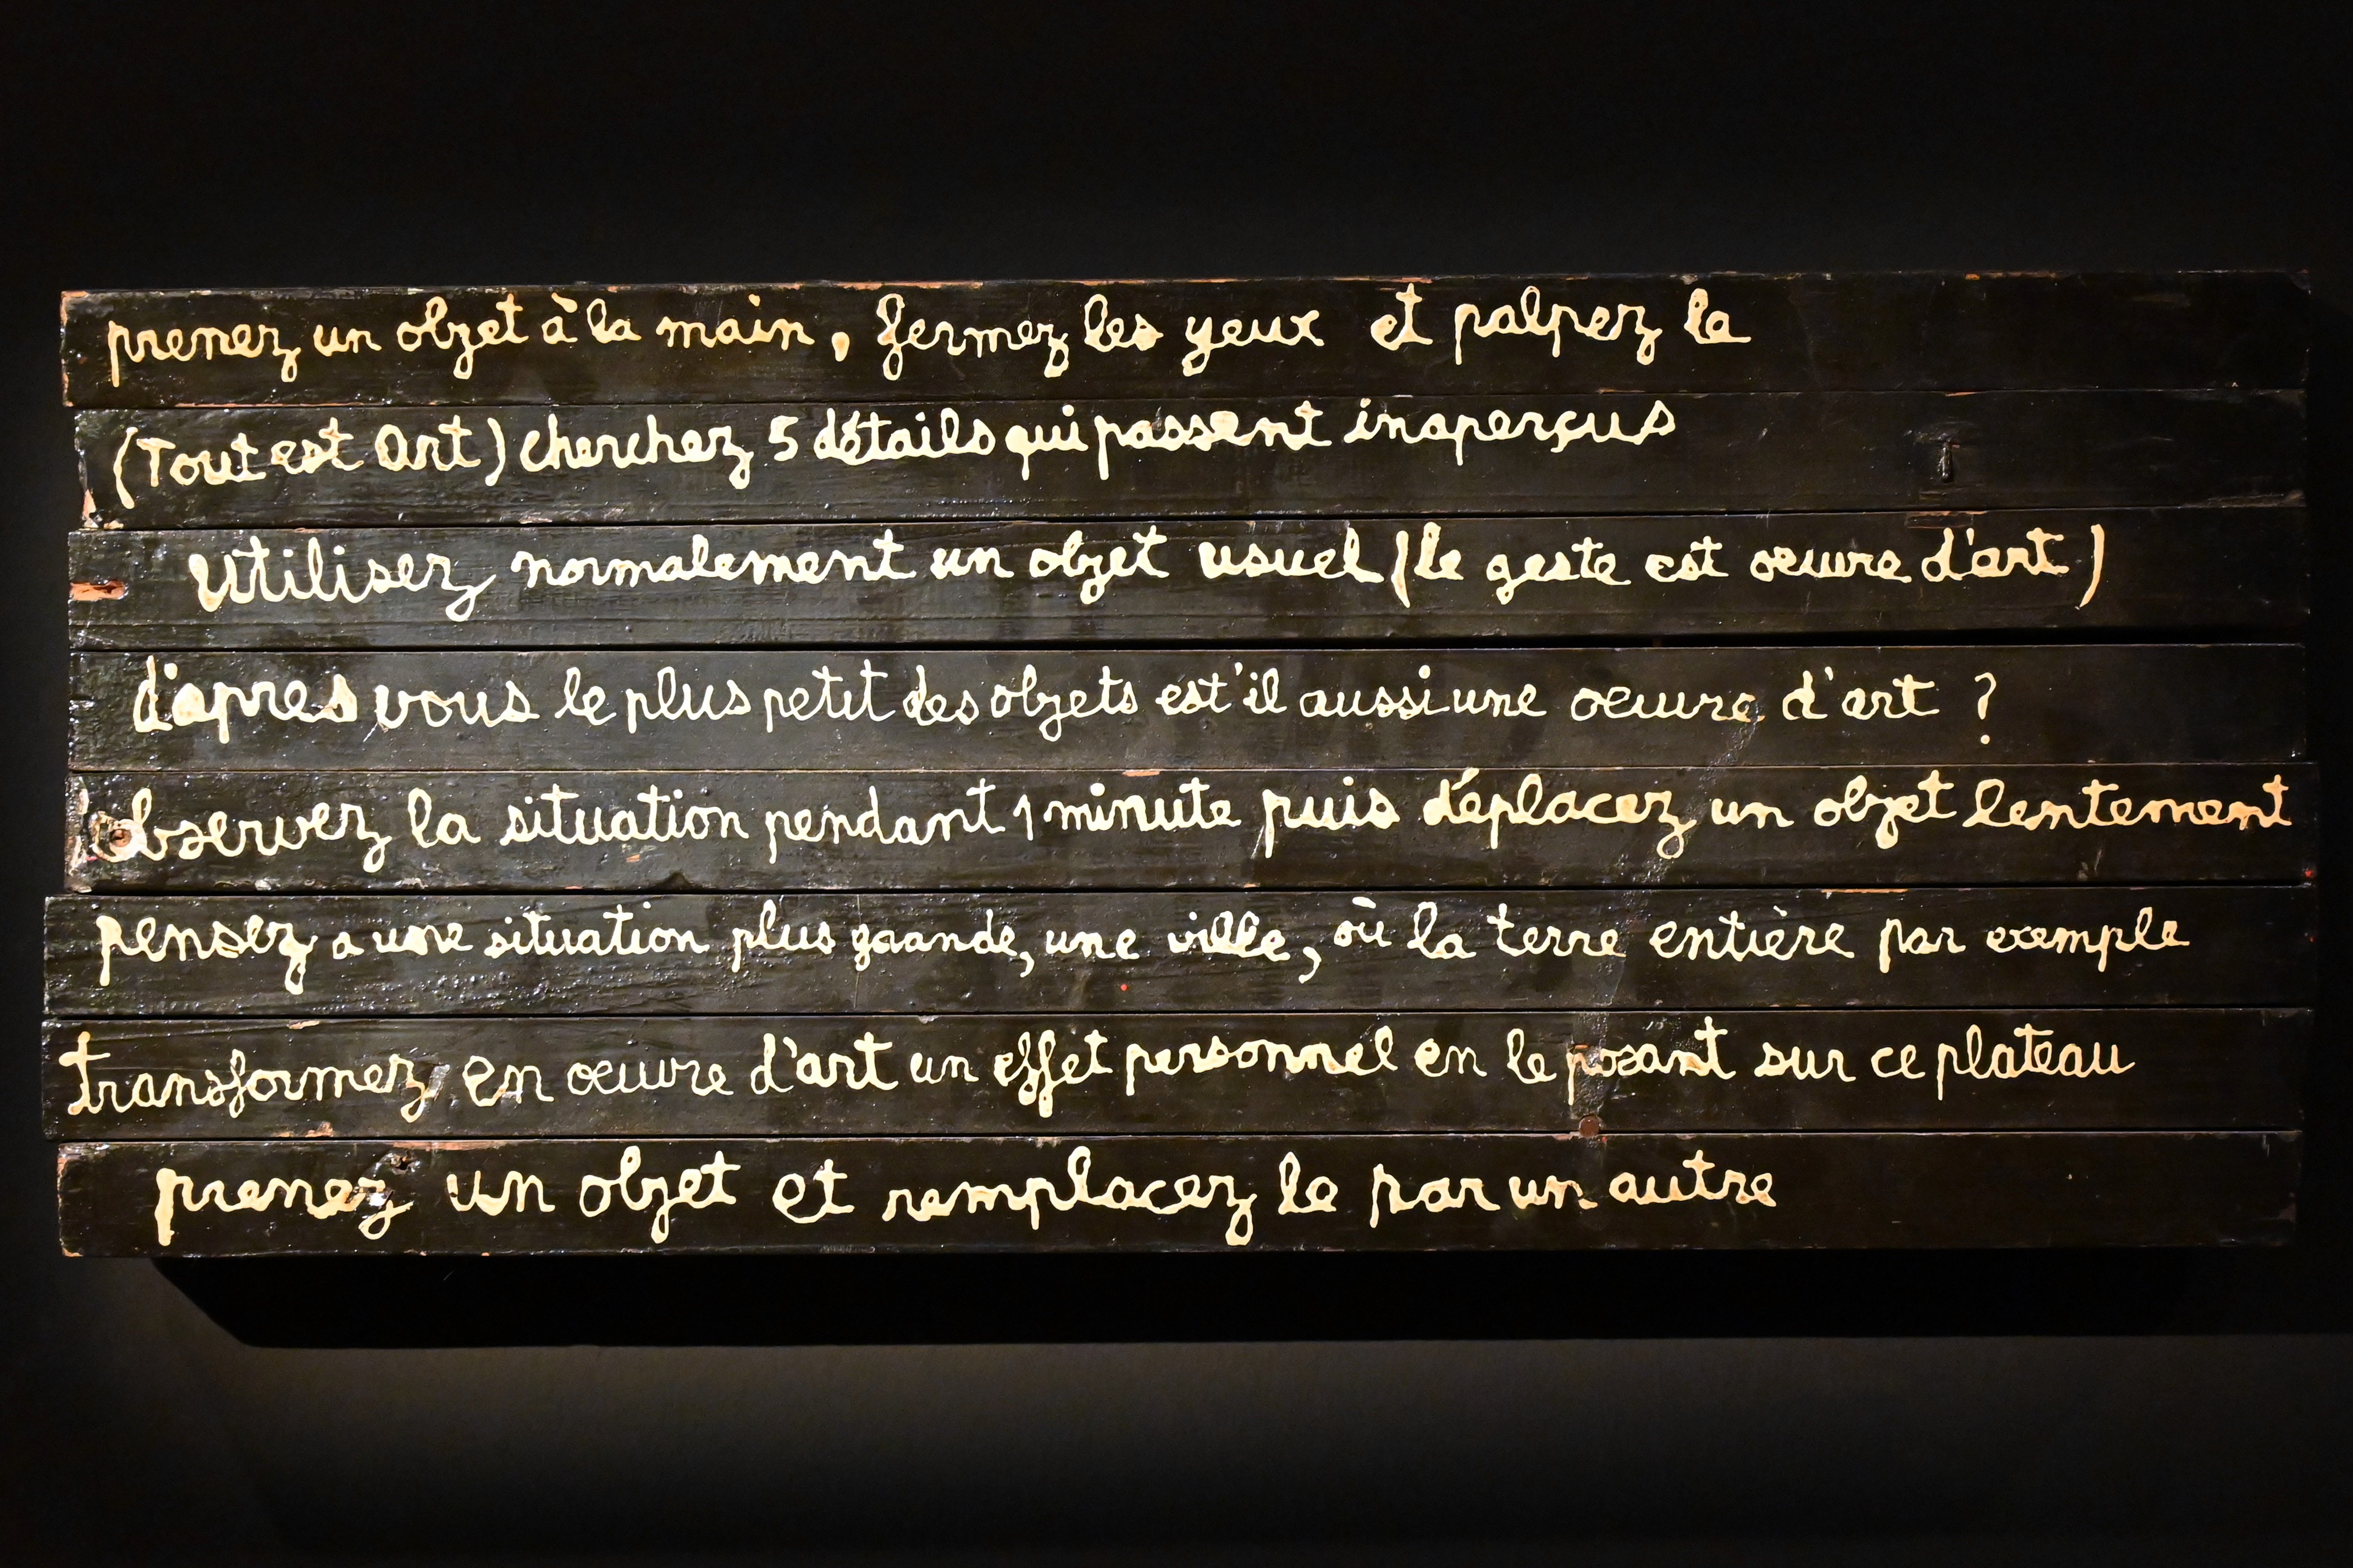 prenez un objet à la main, fermez les yeux et palpez le
(Tout est Art) cherchez 5 détails qui passent inaperçus
Utilisez normalement un objet usuel (le geste est oeuvre d'art)
d'apres vous le plus petit des objets est'il aussi une oeuvre d'art ?
observez la situation pendant 1 minute puis déplacez un objet lentement
pensez a une situation plus grande, une ville, où la terre entière par exemple
transformez en oeuvre d'art un effet personnel en le posant sur ce plateau
prenez un objet et remplacez le par un autre